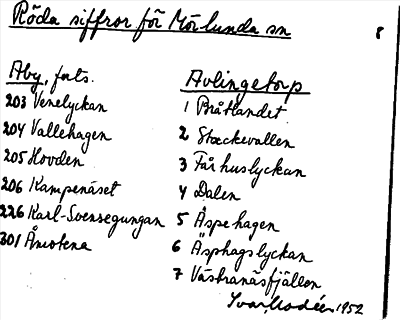 Röda siffror för Mörlunda sn
8
Åby, forts.
203 Venelyckan
204 Vallehagen
205 Hovden
206 Kampenäset
226 Karl-Svensegungan
301 Åmotena
Arlingetorp
1 Bråtlandet
2 Stockevallen
3 Fårhuslyckan
4 Dalen
5 Äspehagen
6 Äsphagslyckan
7 Västranäsfjällen
Ivar Modéer 1952